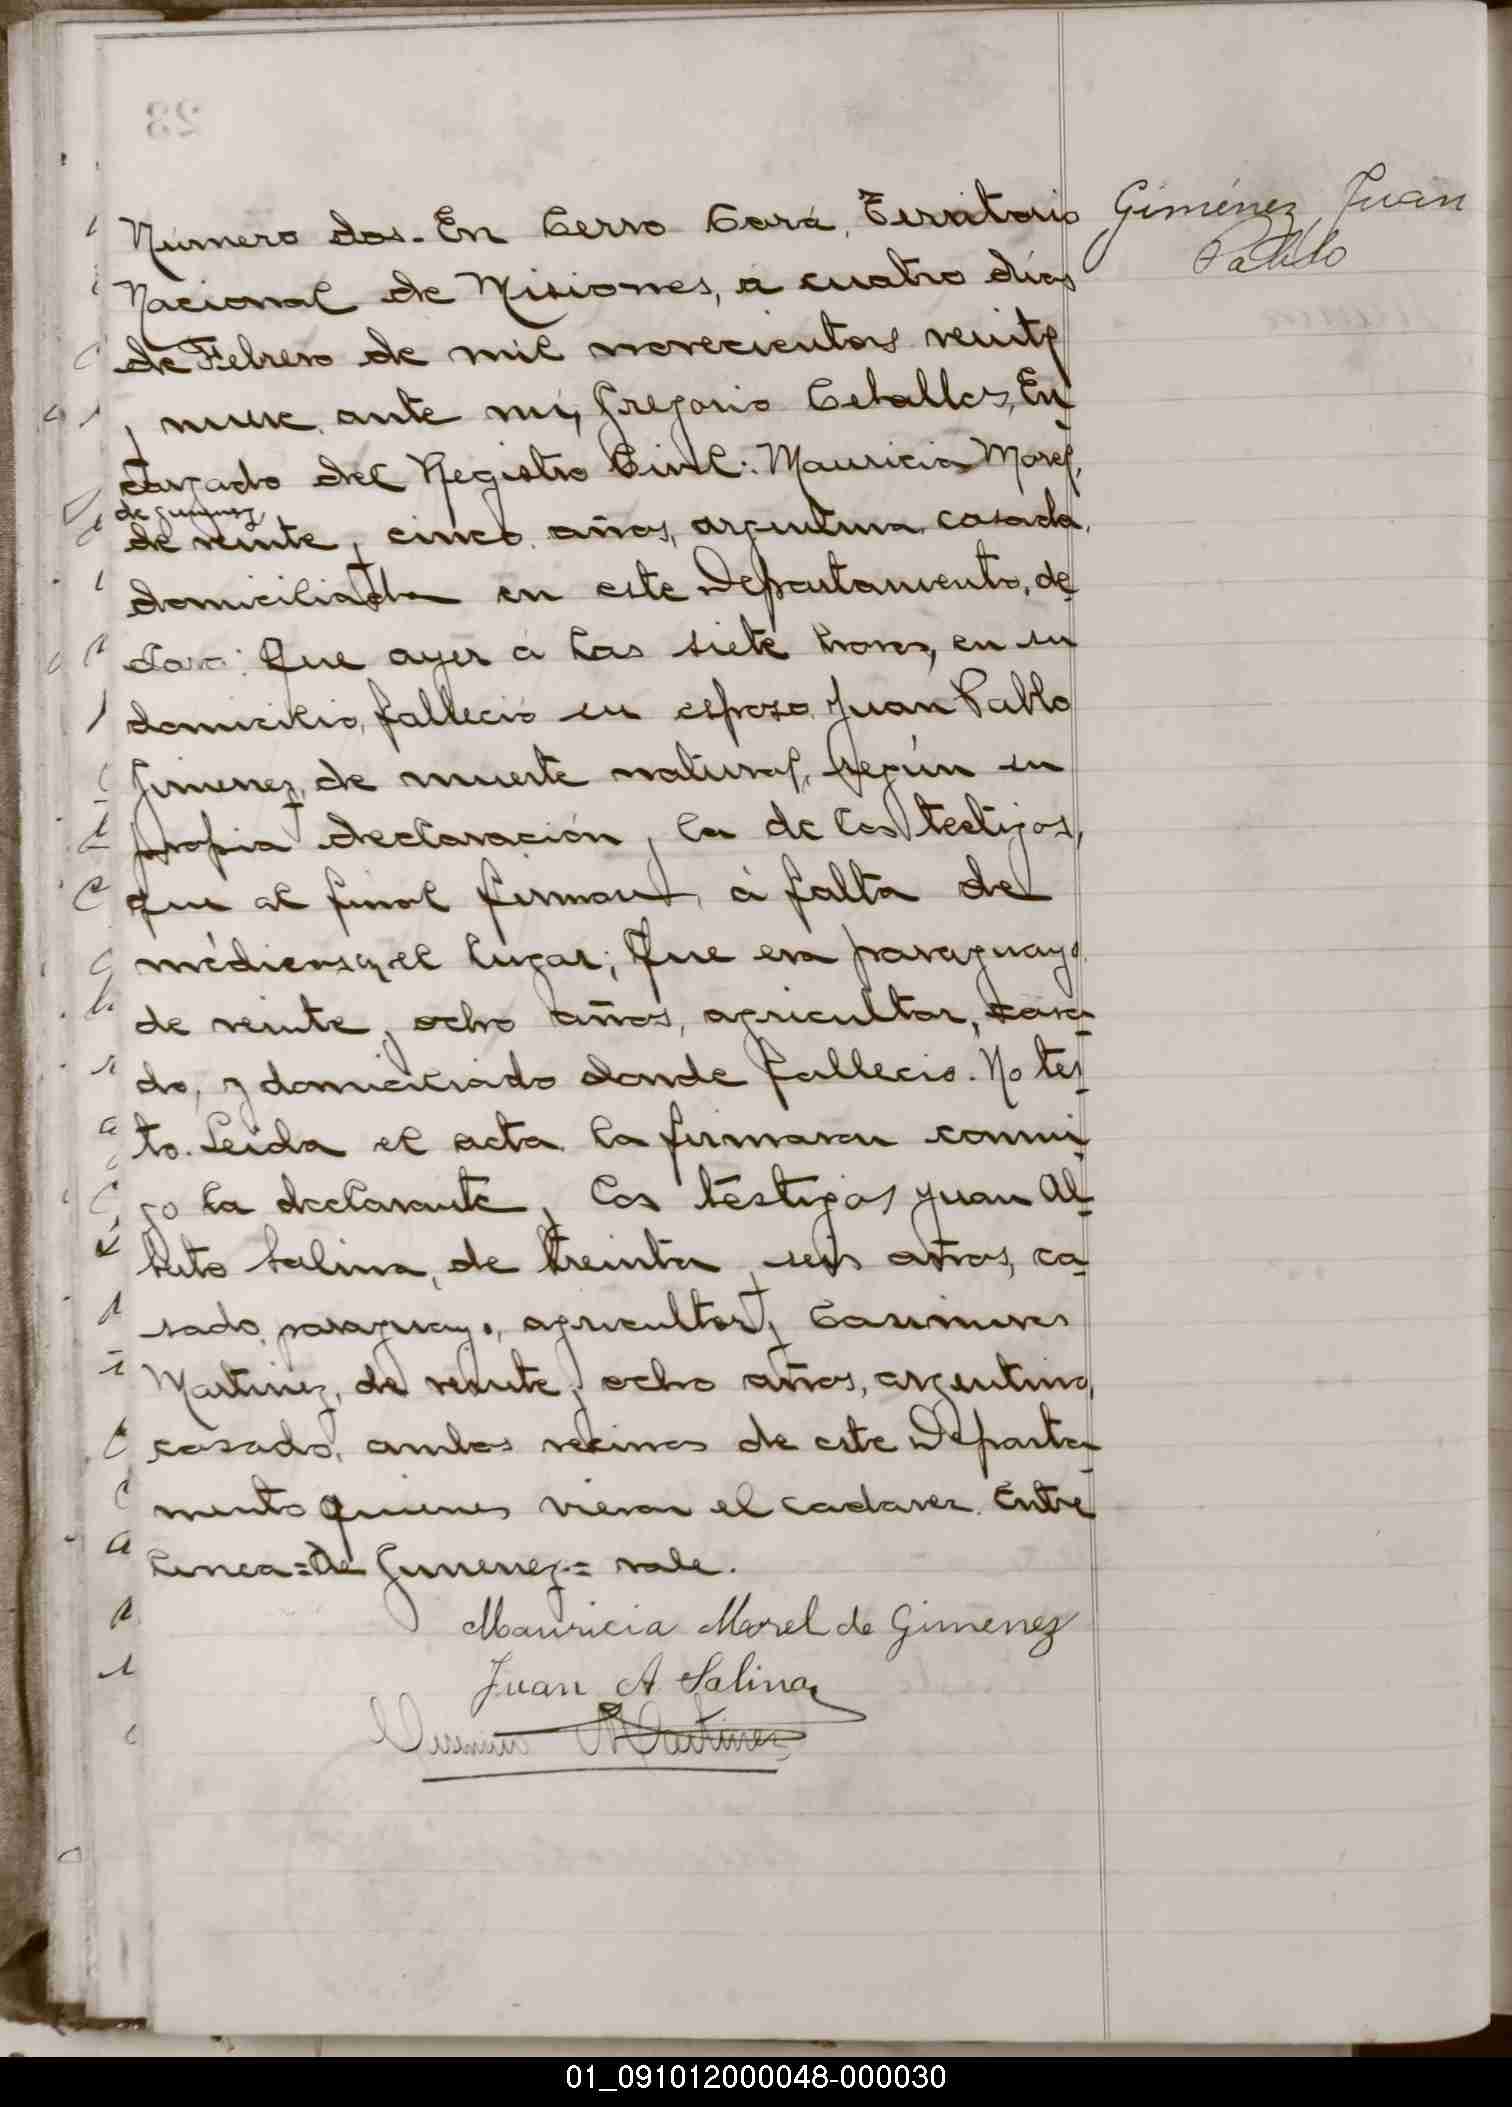 Giménez, Juan
Pablo
Número dos. En Cerro Corá, Territorio
Nacional de Misiones, á cuatro días
de Febrero de mil novecientos veinte
y nueve ante mí, Gregorio Ceballos, En-
cargado del Registro Civil: Mauricia Morel,
de Gimenez
de veinte y cinco años, argentina casada,
domiciliada en este Departamento, de-
clara: Que ayer á las siete horas, en su
domicilio, falleció su esposo Juan Pablo
Jimenez, de muerte natural, según su
propia declaración y la de los testigos,
que al final firman, á falta de
médicos en el lugar; Que era paraguayo
de veinte y ocho años, agricultor, casa-
do, y domiciliado donde falleció. No tes-
to. Leída el acta la firmaron conmi-
go la declarante y los testigos Juan Al-
berto Salina, de treinta y seis años, ca-
sado, paraguayo, agricultor, y Casimiro
Martinez, de veinte y ocho años, argentino,
casado, ambos vecinos de este Departa-
mento quienes vieron el cadaver. Entre
linea=De Jimenez.= vale.
Mauricia Morel de Gimenez
Juan A. Salina
Martinez
01_091012000048-000030